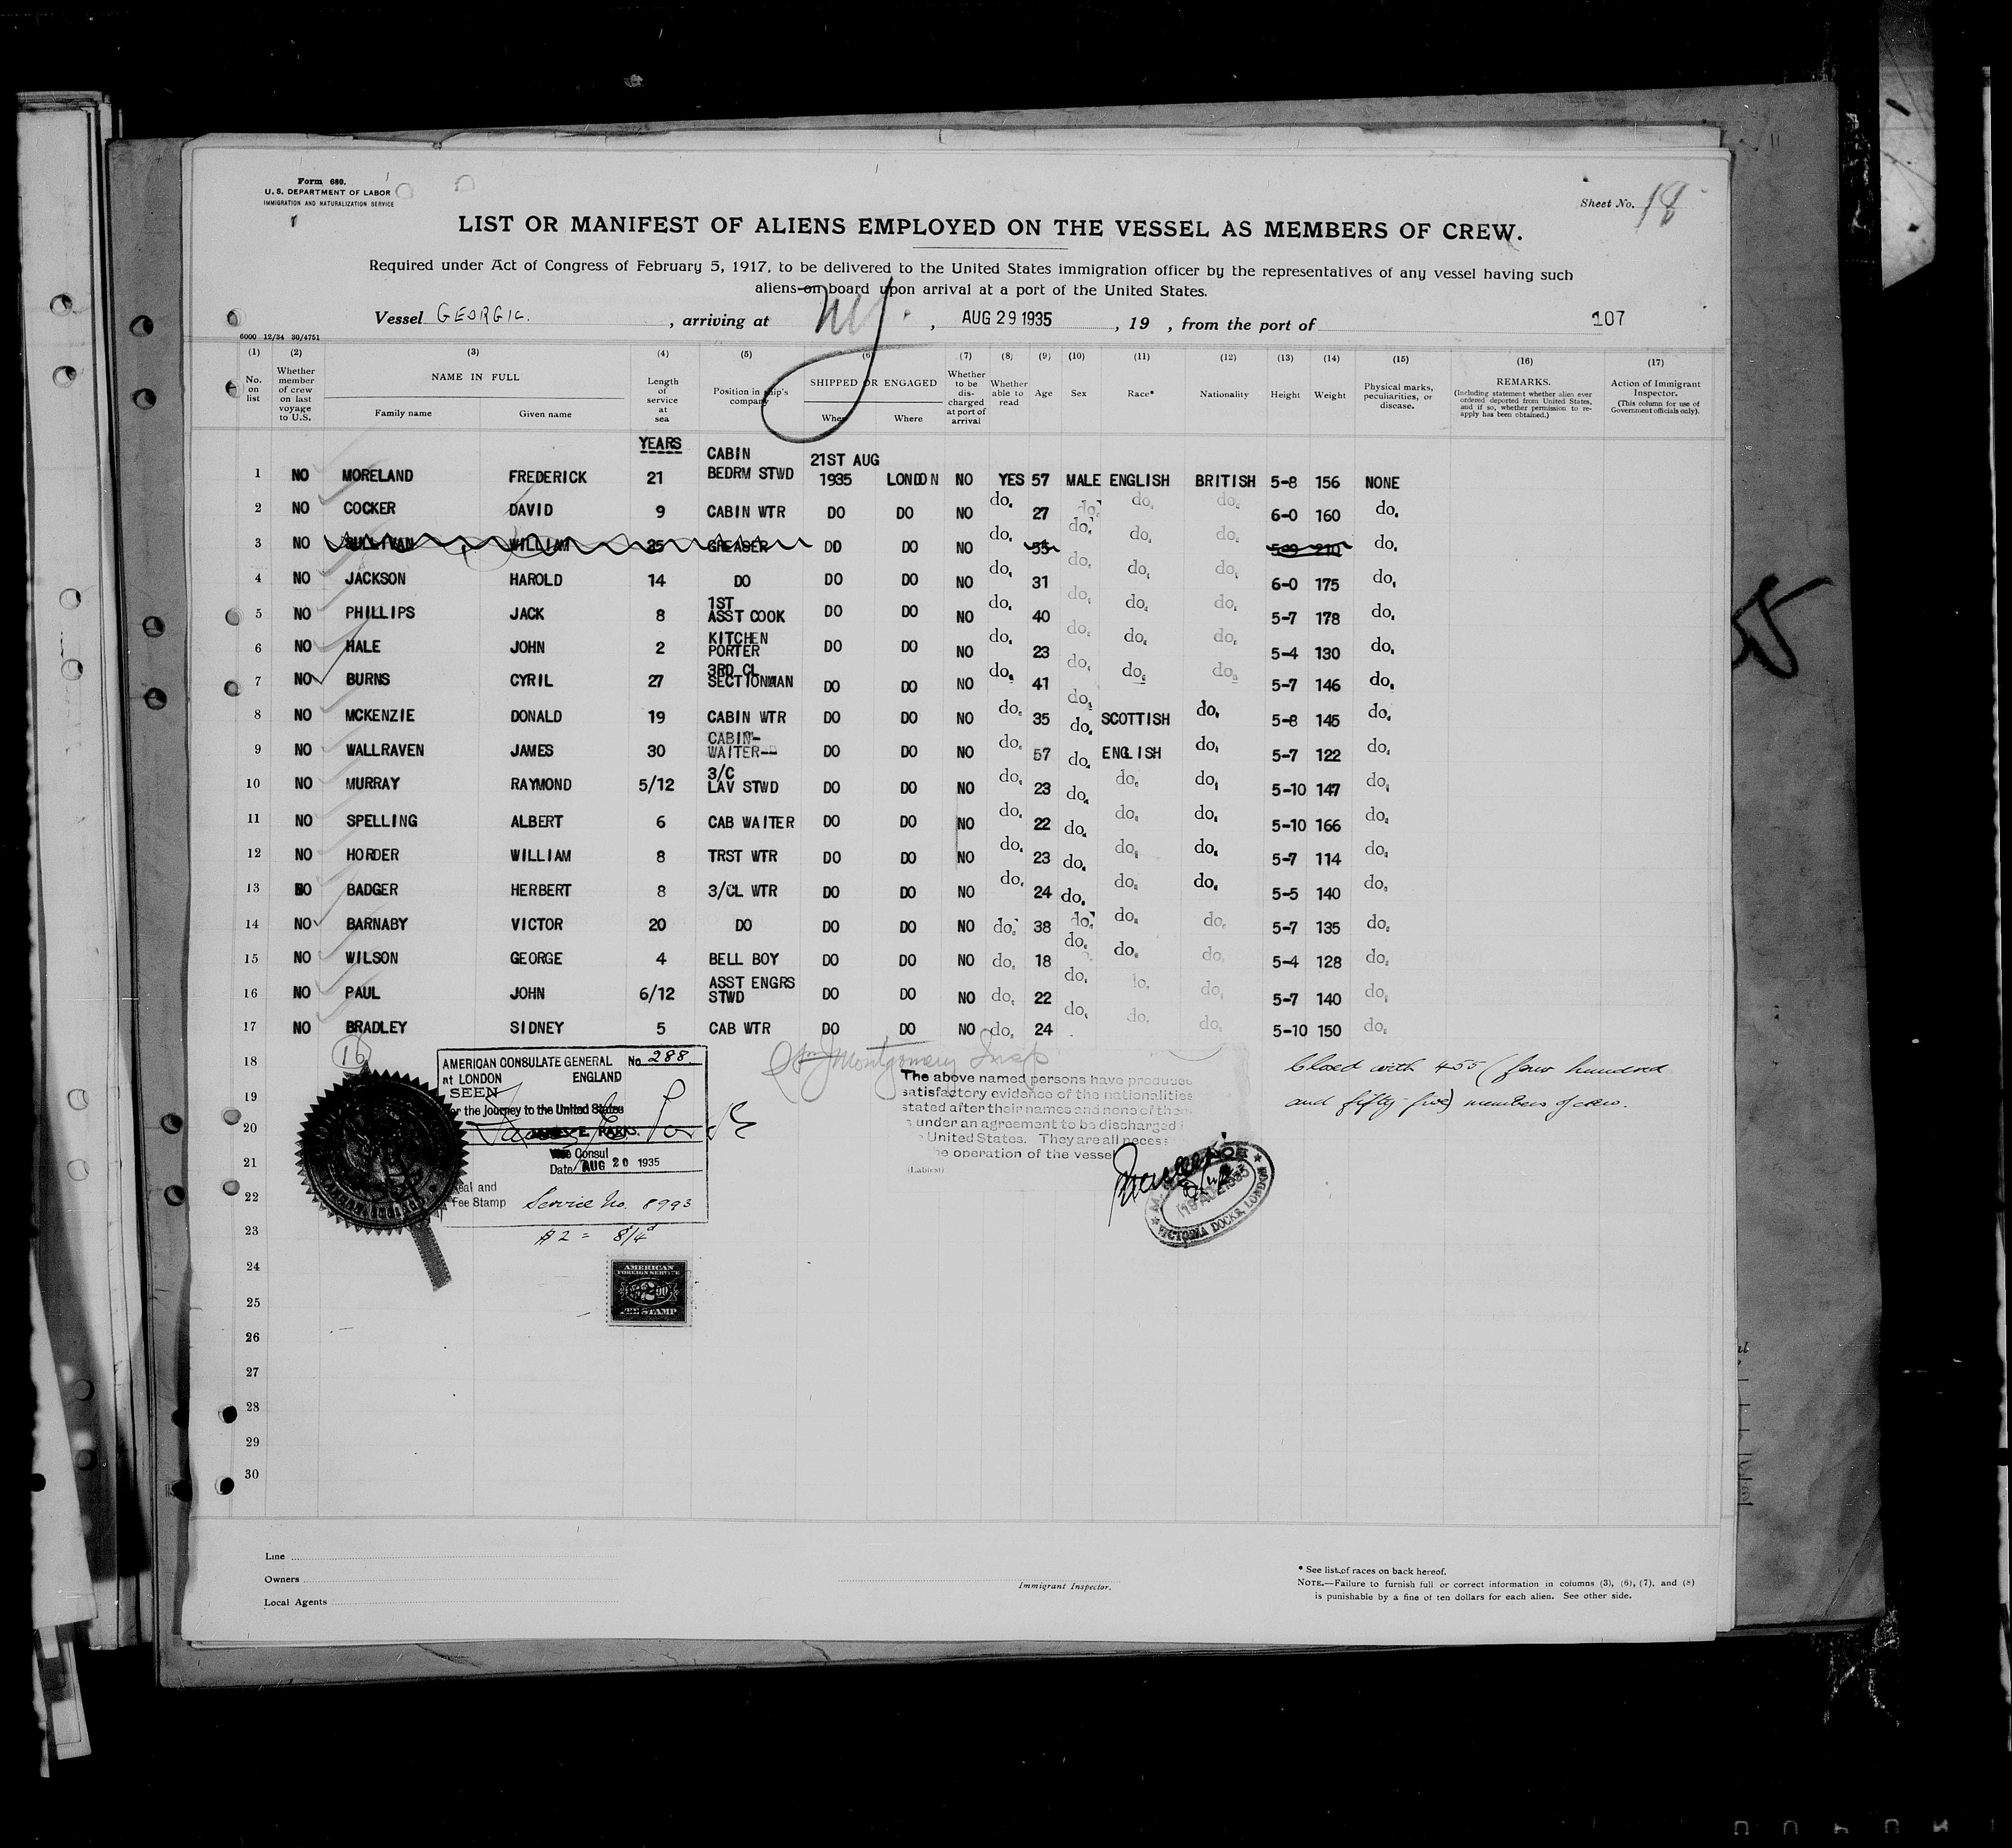 Form 680.
U. S. DEPARTMENT OF LABOR
IMMIGRATION AND NATURALIZATION SERVICE
Sheet No. 18
LIST OR MANIFEST OF ALIENS EMPLOYED ON THE VESSEL AS MEMBERS OF CREW.
Required under Act of Congress of February 5, 1917, to be delivered to the United States immigration officer by the representatives of any vessel having such
aliens on board upon arrival at a port of the United States.
Vessel GEORGIC. , arriving at NY. , AUG 29 1935 , 19 , from the port of 107
6000 12/34 30/4751
(1) (2) (3) (4) (5) (6) (7) (8) (9) (10) (11) (12) (13) (14) (15) (16) (17)
No. on list
Whether member of crew on last voyage to U.S.
NAME IN FULL
Family name Given name
Length of service at sea
Position in ship's company
SHIPPED OR ENGAGED
When Where
Whether to be discharged at port of arrival
Whether able to read
Age
Sex
Race*
Nationality
Height
Weight
Physical marks, peculiarities, or disease.
REMARKS.
(Including statement whether alien ever ordered deported from United States, and if so, whether permission to reapply has been obtained.)
Action of Immigrant Inspector.
(This column for use of Government officials only).
YEARS
1 NO MORELAND FREDERICK 21 CABIN BEDRM STWD 21ST AUG 1935 LONDON NO YES 57 MALE ENGLISH BRITISH 5-8 156 NONE
2 NO COCKER DAVID 9 CABIN WTR DO DO NO do. 27 do. do. do. 6-0 160 do.
3 NO SULLIVAN WILLIAM 35 GREASER DO DO NO do. 55 do. do. do. 5-9 210 do.
4 NO JACKSON HAROLD 14 DO DO DO NO do. 31 do. do. do. 6-0 175 do.
5 NO PHILLIPS JACK 8 1ST ASST COOK DO DO NO do. 40 do. do. do. 5-7 178 do.
6 NO HALE JOHN 2 KITCHEN PORTER DO DO NO do. 23 do. do. do. 5-4 130 do.
7 NO BURNS CYRIL 27 3RD CL SECTIONMAN DO DO NO do. 41 do. do. do. 5-7 146 do.
8 NO MCKENZIE DONALD 19 CABIN WTR DO DO NO do. 35 do. SCOTTISH do. 5-8 145 do.
9 NO WALLRAVEN JAMES 30 CABIN- WAITER-- DO DO NO do. 57 do. ENGLISH do. 5-7 122 do.
10 NO MURRAY RAYMOND 5/12 3/C LAV STWD DO DO NO do. 23 do. do. do. 5-10 147 do.
11 NO SPELLING ALBERT 6 CAB WAITER DO DO NO do. 22 do. do. do. 5-10 166 do.
12 NO HORDER WILLIAM 8 TRST WTR DO DO NO do. 23 do. do. do. 5-7 114 do.
13 NO BADGER HERBERT 8 3/CL WTR DO DO NO do. 24 do. do. do. 5-5 140 do.
14 NO BARNABY VICTOR 20 DO DO DO NO do. 38 do. do. do. 5-7 135 do.
15 NO WILSON GEORGE 4 BELL BOY DO DO NO do. 18 do. do. do. 5-4 128 do.
16 NO PAUL JOHN 6/12 ASST ENGRS STWD DO DO NO do. 22 do. do. do. 5-7 140 do.
17 NO BRADLEY SIDNEY 5 CAB WTR DO DO NO do. 24 do. do. do. 5-10 150 do.
18
19
20
21
22
23
24
25
26
27
28
29
30
16
AMERICAN CONSULATE GENERAL No. 288
at LONDON ENGLAND
SEEN
for the Journey to the United States
E. PARKS.
Vice Consul
Date AUG 20 1935
Seal and
Fee Stamp Service No. 8993
$2 = 8/4d
AMERICAN
FOREIGN SERVICE
$2.00
FEE STAMP
Montgomery Insp
The above named persons have produced
satisfactory evidence of the nationalities
stated after their names and none of them
under an agreement to be discharged
United States. They are all necess
the operation of the vessel
19 AUG 1935
VICTORIA DOCKS, LONDON
Closed with 455 (four hundred
and fifty five) members of crew.
Line
Owners
Local Agents
Immigrant Inspector.
* See list of races on back hereof.
NOTE.—Failure to furnish full or correct information in columns (3), (6), (7), and (8)
is punishable by a fine of ten dollars for each alien. See other side.